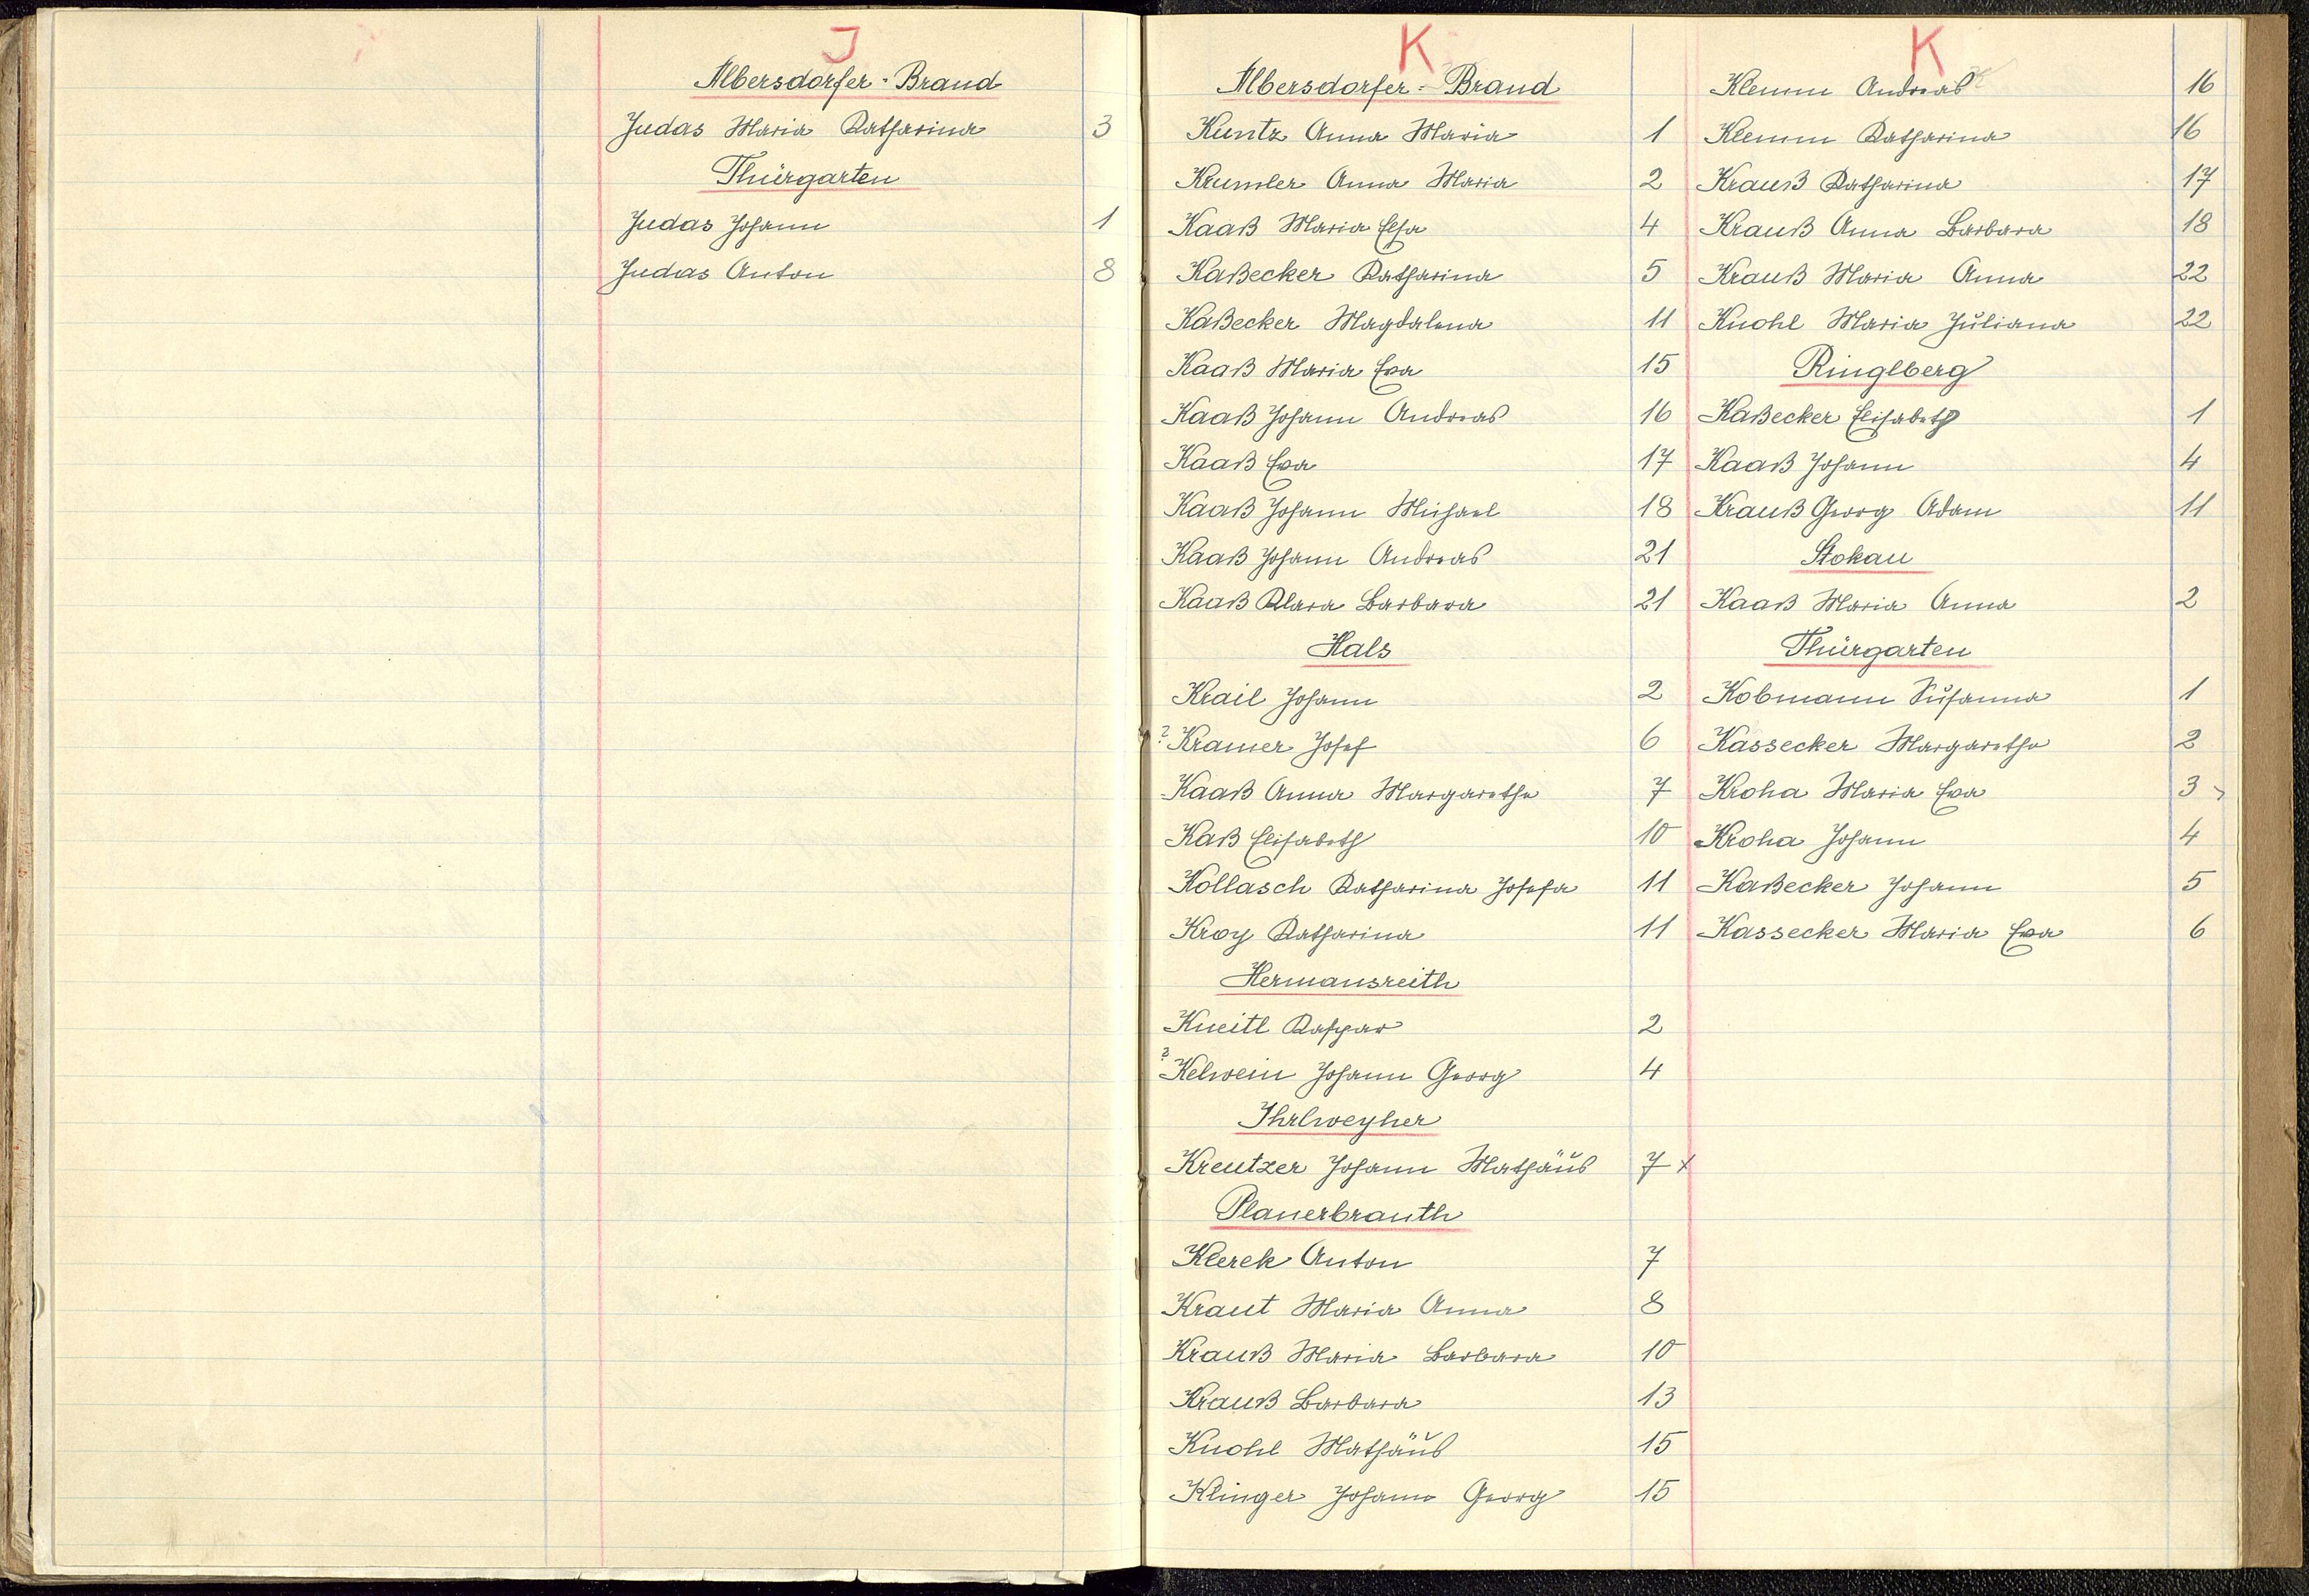 J
Albersdorfer-Brand
Judas Maria Katharina 3
Thürgarten
Judas Johann 1
Judas Anton 8
K
Albersdorfer-Brand
Kuntz Anna Maria 1
Krumler Anna Maria 2
Kaaß Maria Eva 4
Kaßecker Katharina 5
Kaßecker Magdalena 11
Kaaß Maria Eva 15
Kaaß Johann Andreas 16
Kaaß Eva 17
Kaaß Johann Michael 18
Kaaß Johann Andreas 21
Kaaß Klara Barbara 21
Hals
Krail Johann 2
? Kramer Josef 6
Kaaß Anna Margaretha 7
Kaß Elisabeth 10
Kollasch Katharina Josefa 11
Kroy Katharina 11
Hermansreith
Kneitl Kaspar 2
? Kelwein Johann Georg 4
Ihrlweyher
Kreutzer Johann Mathäus 7 x
Planerbrauth
Klerek Anton 7
Kraut Maria Anna 8
Krauß Maria Barbara 10
Krauß Barbara 13
Knohl Mathäus 15
Klinger Johann Georg 15
K
Klemm Andreas 16
Klemm Katharina 16
Krauß Katharina 17
Krauß Anna Barbara 18
Krauß Maria Anna 22
Knohl Maria Juliana 22
Ringlberg
Kaßecker Elisabeth 1
Kaaß Johann 4
Krauß Georg Adam 11
Stokau
Kaaß Maria Anna 2
Thürgarten
Kobmann Susanna 1
Kassecker Margaretha 2
Kroha Maria Eva 3
Kroha Johann 4
Kaßecker Johann 5
Kassecker Maria Eva 6